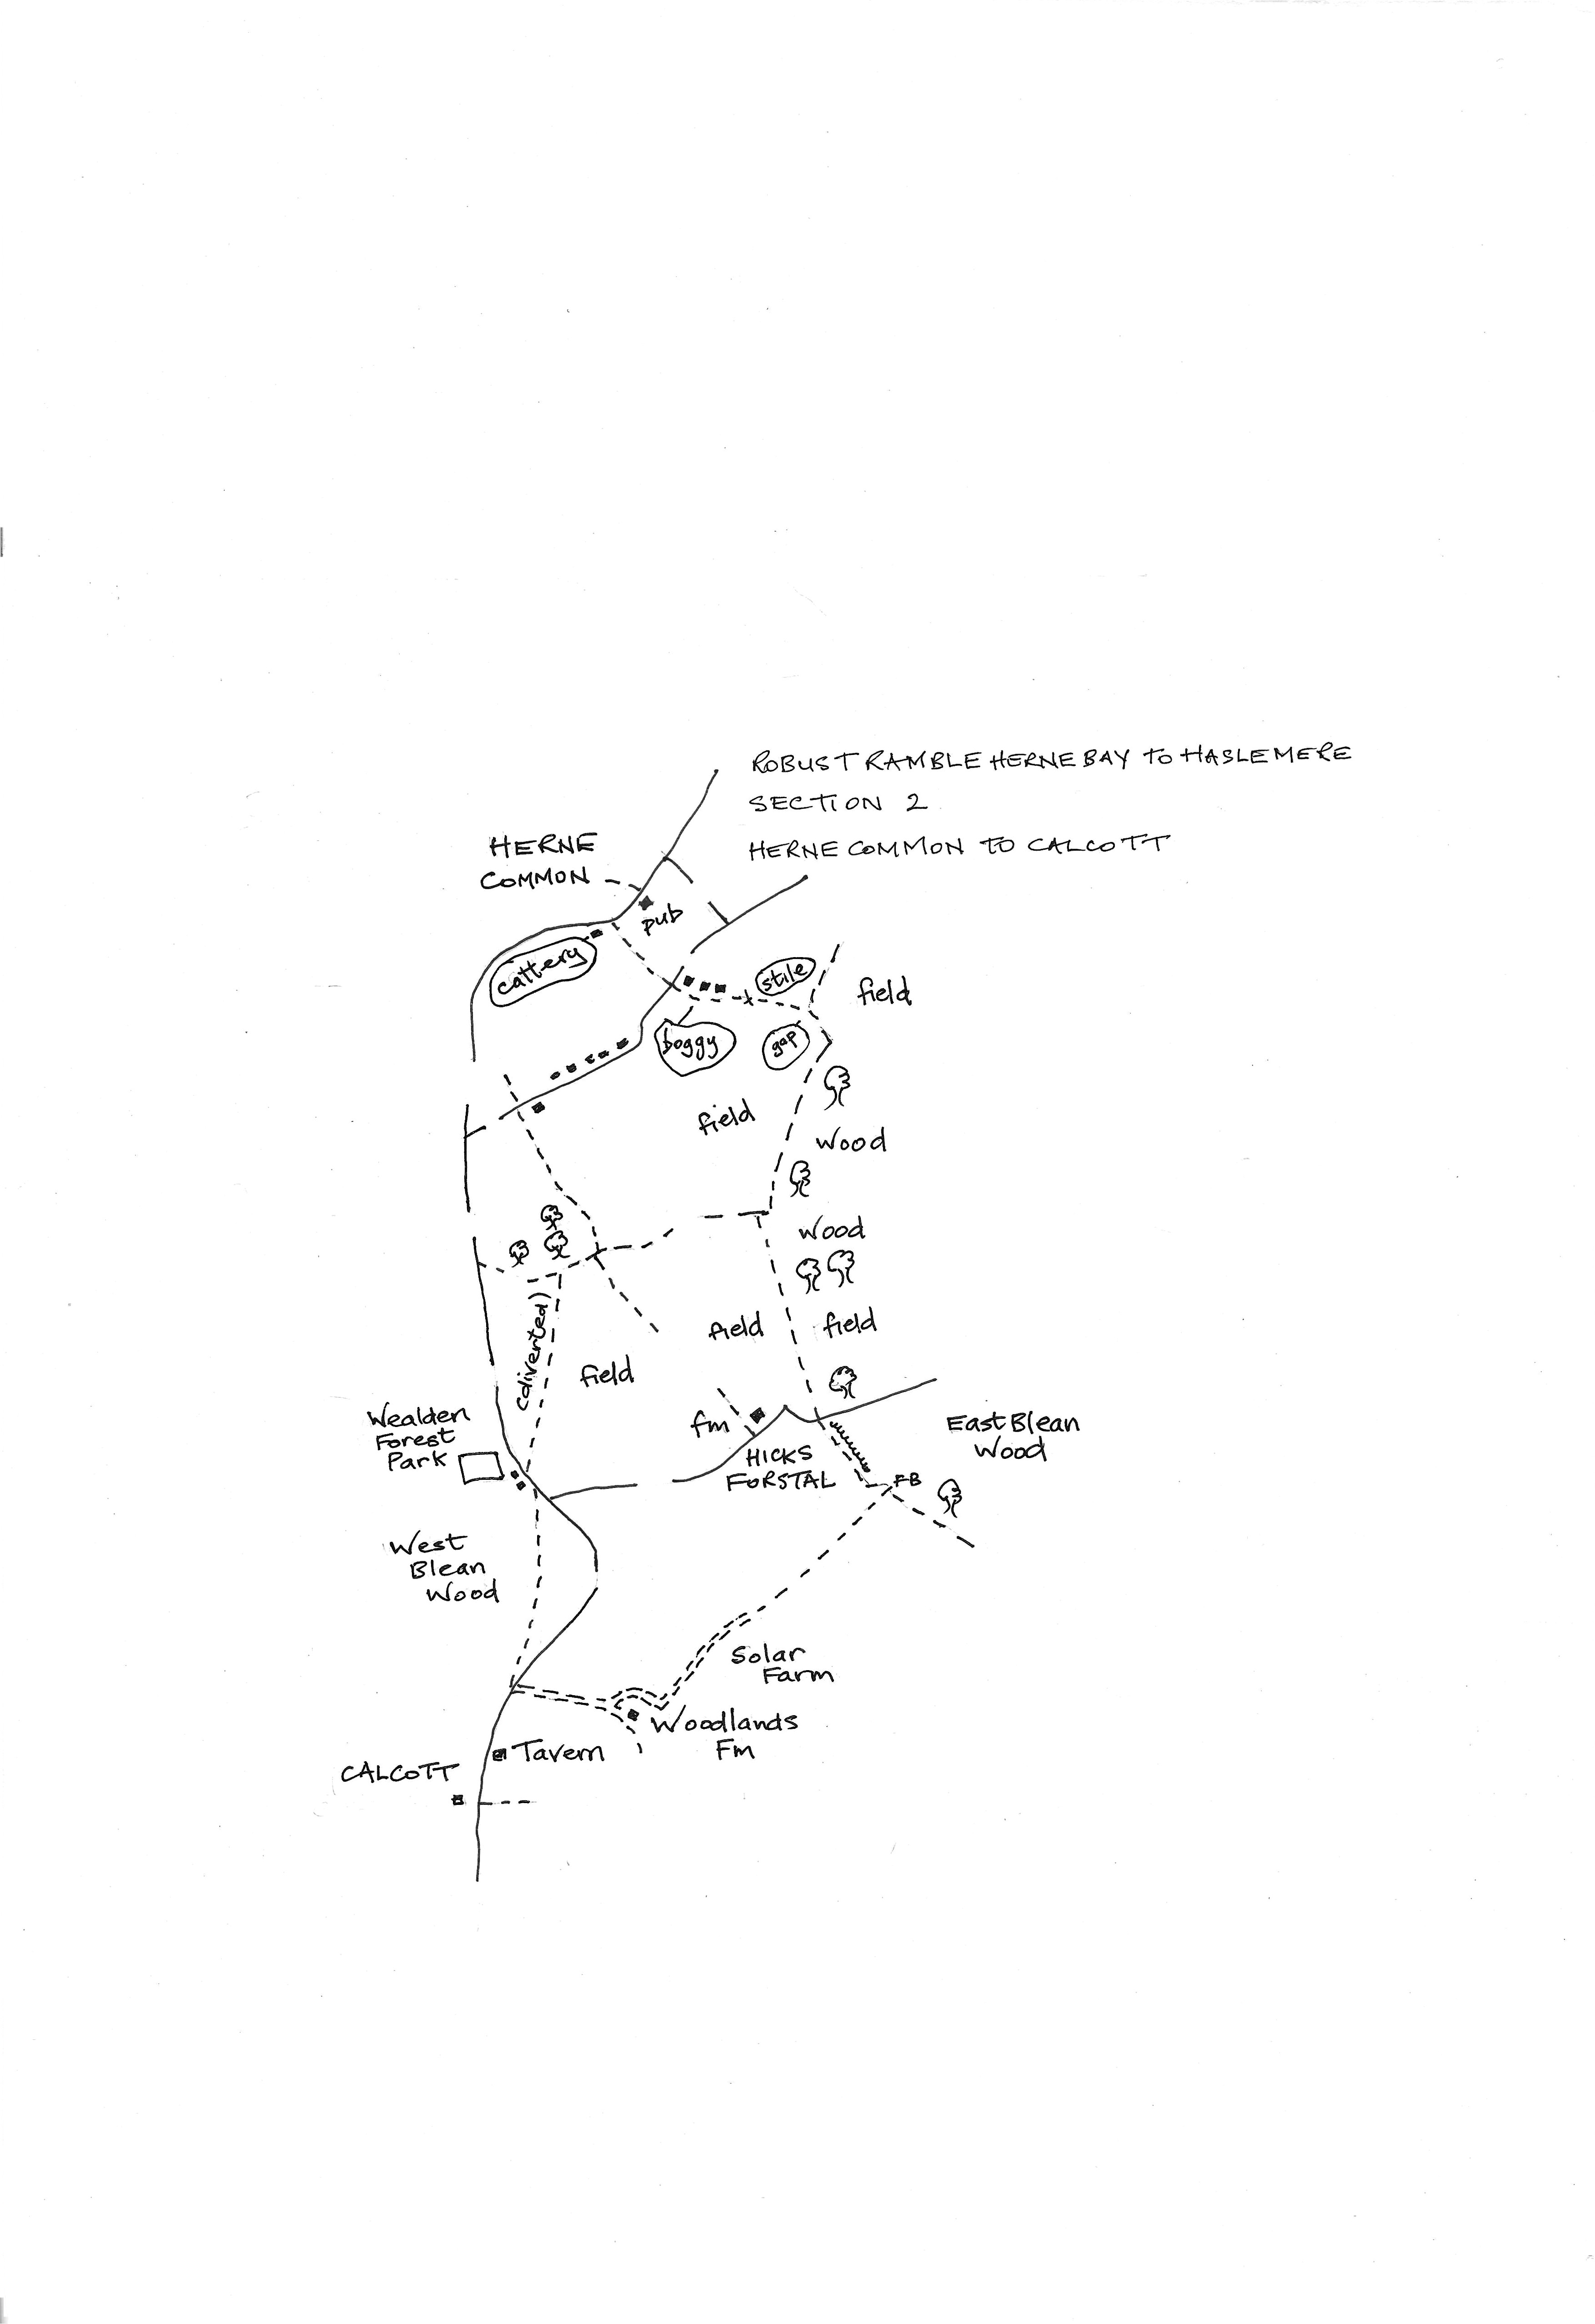 ROBUST RAMBLE HERNE BAY TO HASLEMERE
SECTION 2
HERNE COMMON TO CALCOTT
HERNE
COMMON
pub
cattery
stile
field
boggy
gap
field
Wood
Wood
(diverted)
field
field
field
Wealden
Forest
Park
fm
HICKS
FORSTAL
East Blean
Wood
FB
West
Blean
Wood
Solar
Farm
Woodlands
Fm
Tavern
CALCOTT